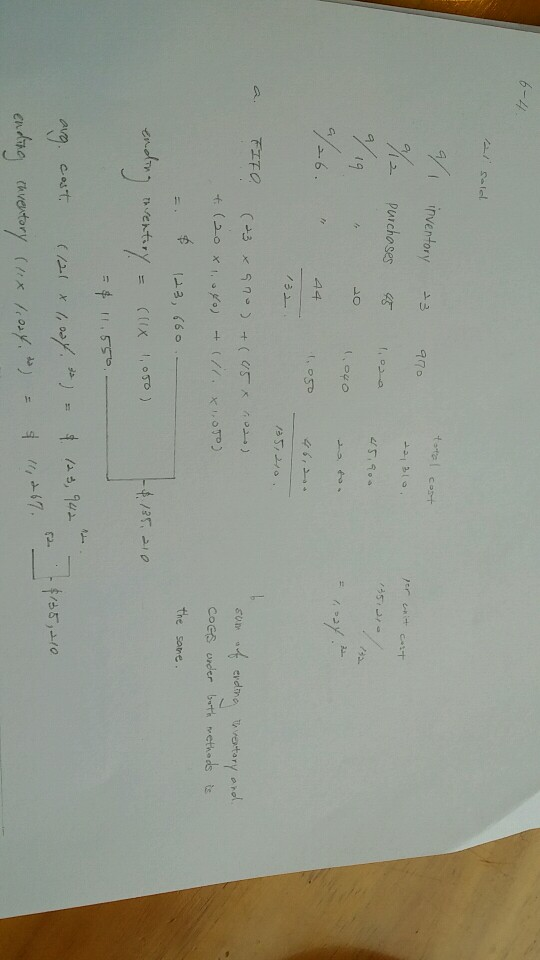 6-4.
121 sold
total cost
per unit cost
9/1 inventory 23 970 22,310.
135,210/132
9/12 purchases 45 1,020 45,900
= 1,024.32
9/19 " 20 1,040 20,800
9/26. " 44 1,050 46,200
132. 135,210.
a. FIFO. (23 x 970) + (45 x 1,020)
+ (20 x 1,040) + (11. x 1,050)
=. $ 123,660.
ending inventory = (11 x 1,050)
= $. 11,550.
$. 135,210
b sum of ending inventory and
COGS under both methods is
the same.
avg. cost (121 x 1,024.32) = $ 123,942
ending inventory (11 x 1,024.32) = $ 11,267.52
$135,210